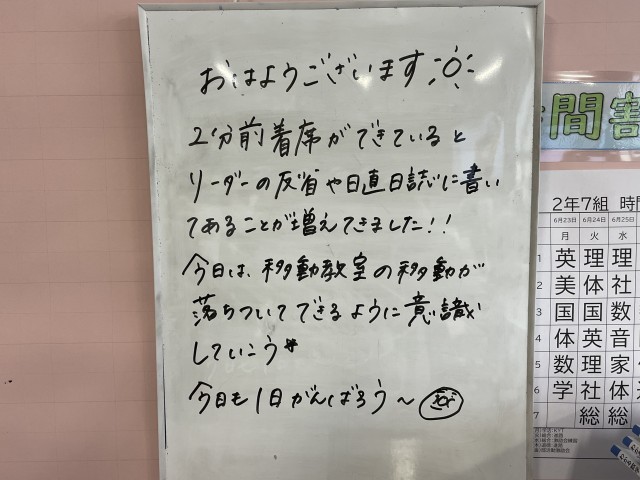 おはようございます
2分前着席ができていると
リーダーの反省や日直日誌に書い
てあることが増えてきました!!
今日は、移動教室の移動が
落ちついてできるように意識
していこう
今日も1日がんばろう〜
間割
2年7組 時間
6月23日 6月24日 6月25日
月 火 水
1 英 理 理
2 美 体 社
3 国 国 数
4 体 英 音
5 数 理 家
6 学 社 体
7 総 総